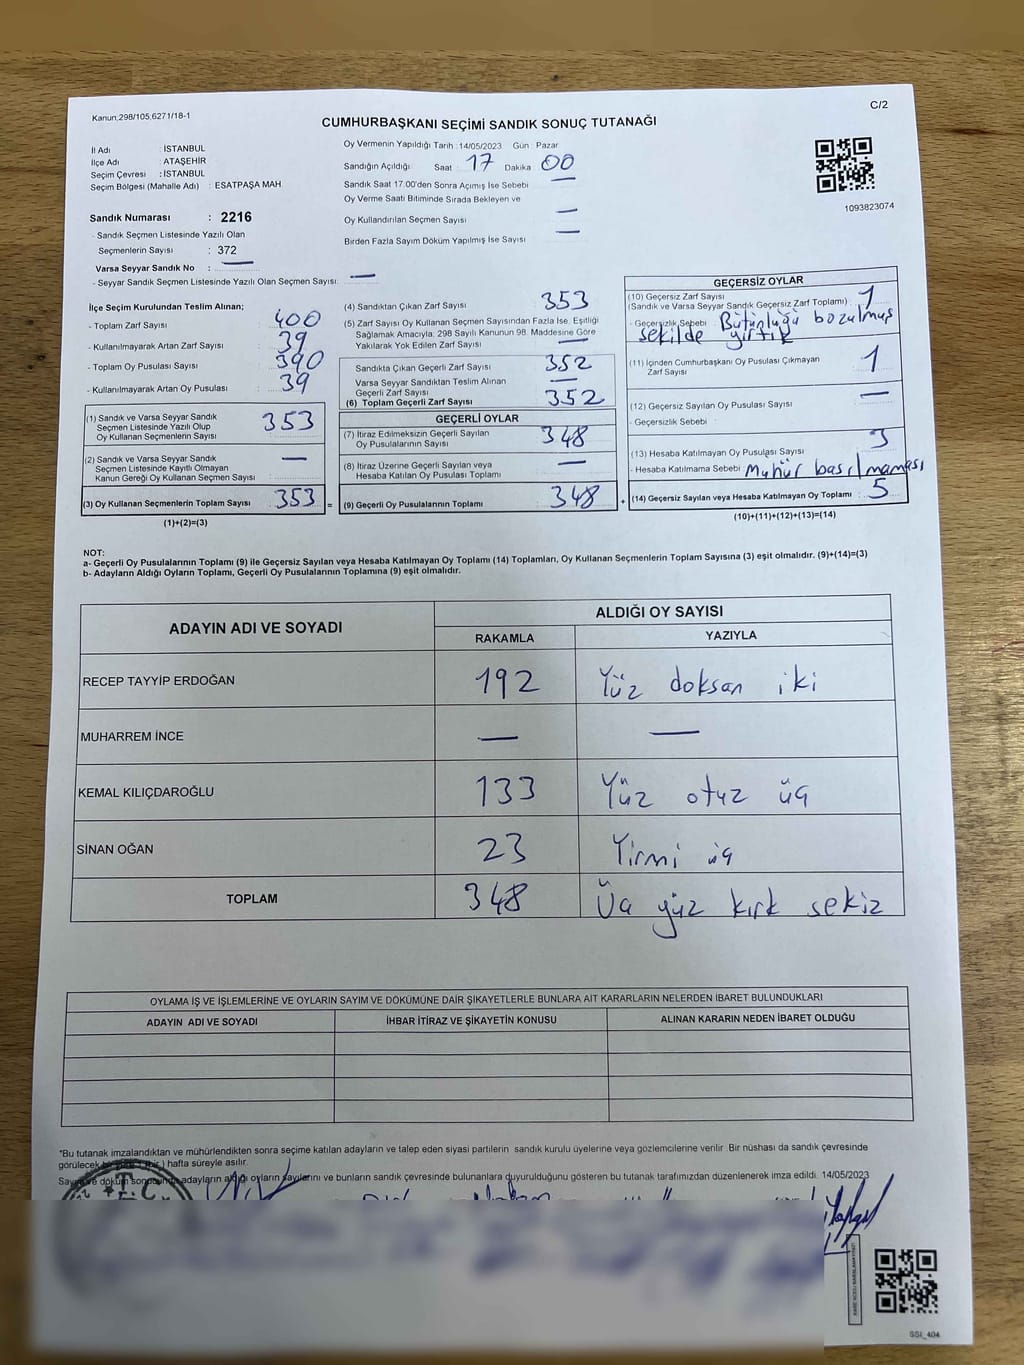 Kanun;298/105,6271/18-1
C/2
CUMHURBAŞKANI SEÇİMİ SANDIK SONUÇ TUTANAĞI
İl Adı : İSTANBUL
İlçe Adı : ATAŞEHİR
Seçim Çevresi : İSTANBUL
Seçim Bölgesi (Mahalle Adı) : ESATPAŞA MAH.
Sandık Numarası : 2216
- Sandık Seçmen Listesinde Yazılı Olan
Seçmenlerin Sayısı : 372
Varsa Seyyar Sandık No : —
- Seyyar Sandık Seçmen Listesinde Yazılı Olan Seçmen Sayısı: —
Oy Vermenin Yapıldığı Tarih : 14/05/2023 Gün : Pazar
Sandığın Açıldığı Saat : 17 Dakika 00
Sandık Saat 17.00'den Sonra Açımış İse Sebebi —
Oy Verme Saati Bitiminde Sırada Bekleyen ve
Oy Kullandırılan Seçmen Sayısı —
Birden Fazla Sayım Döküm Yapılmış İse Sayısı —
1093823074
İlçe Seçim Kurulundan Teslim Alınan;
- Toplam Zarf Sayısı : 400
- Kullanılmayarak Artan Zarf Sayısı : 39
- Toplam Oy Pusulası Sayısı : 390
- Kullanılmayarak Artan Oy Pusulası : 39
(1) Sandık ve Varsa Seyyar Sandık
Seçmen Listesinde Yazılı Olup
Oy Kullanan Seçmenlerin Sayısı 353
(2) Sandık ve Varsa Seyyar Sandık
Seçmen Listesinde Kayıtlı Olmayan
Kanun Gereği Oy Kullanan Seçmen Sayısı —
(3) Oy Kullanan Seçmenlerin Toplam Sayısı 353 =
(1)+(2)=(3)
(4) Sandıktan Çıkan Zarf Sayısı 353
(5) Zarf Sayısı Oy Kullanan Seçmen Sayısından Fazla İse, Eşitliği
Sağlamak Amacıyla, 298 Sayılı Kanunun 98. Maddesine Göre
Yakılarak Yok Edilen Zarf Sayısı —
Sandıkta Çıkan Geçerli Zarf Sayısı 352
Varsa Seyyar Sandıktan Teslim Alınan
Geçerli Zarf Sayısı —
(6) Toplam Geçerli Zarf Sayısı 352
GEÇERLİ OYLAR
(7) İtiraz Edilmeksizin Geçerli Sayılan
Oy Pusulalarının Sayısı 348
(8) İtiraz Üzerine Geçerli Sayılan veya
Hesaba Katılan Oy Pusulası Toplamı —
(9) Geçerli Oy Pusulalarının Toplamı 348 +
GEÇERSİZ OYLAR
(10) Geçersiz Zarf Sayısı
(Sandık ve Varsa Seyyar Sandık Geçersiz Zarf Toplamı) : 1
- Geçersizlik Sebebi Bütünlüğü bozulmuş
şekilde yırtık
(11) İçinden Cumhurbaşkanı Oy Pusulası Çıkmayan
Zarf Sayısı 1
(12) Geçersiz Sayılan Oy Pusulası Sayısı —
- Geçersizlik Sebebi :
(13) Hesaba Katılmayan Oy Pusulası Sayısı 3
- Hesaba Katılmama Sebebi Mühür basılmaması
(14) Geçersiz Sayılan veya Hesaba Katılmayan Oy Toplamı 5
(10)+(11)+(12)+(13)=(14)
NOT:
a- Geçerli Oy Pusulalarının Toplamı (9) ile Geçersiz Sayılan veya Hesaba Katılmayan Oy Toplamı (14) Toplamları, Oy Kullanan Seçmenlerin Toplam Sayısına (3) eşit olmalıdır. (9)+(14)=(3)
b- Adayların Aldığı Oyların Toplamı, Geçerli Oy Pusulalarının Toplamına (9) eşit olmalıdır.
ADAYIN ADI VE SOYADI
ALDIĞI OY SAYISI
RAKAMLA YAZIYLA
RECEP TAYYİP ERDOĞAN 192 Yüz doksan iki
MUHARREM İNCE — —
KEMAL KILIÇDAROĞLU 133 Yüz otuz üç
SİNAN OĞAN 23 Yirmi üç
TOPLAM 348 Üç yüz kırk sekiz
OYLAMA İŞ VE İŞLEMLERİNE VE OYLARIN SAYIM VE DÖKÜMÜNE DAİR ŞİKAYETLERLE BUNLARA AİT KARARLARIN NELERDEN İBARET BULUNDUKLARI
ADAYIN ADI VE SOYADI İHBAR İTİRAZ VE ŞİKAYETİN KONUSU ALINAN KARARIN NEDEN İBARET OLDUĞU
*Bu tutanak imzalandıktan ve mühürlendikten sonra seçime katılan adayların ve talep eden siyasi partilerin sandık kurulu üyelerine veya gözlemcilerine verilir. Bir nüshası da sandık çevresinde
görülecek bir yere 1 (bir) hafta süreyle asılır.
Sayım ve döküm sonucunda adayların aldığı oyların sayılarını ve bunların sandık çevresinde bulunanlara duyurulduğunu gösteren bu tutanak tarafımızdan düzenlenerek imza edildi. 14/05/2023
T.C.
SSI_404